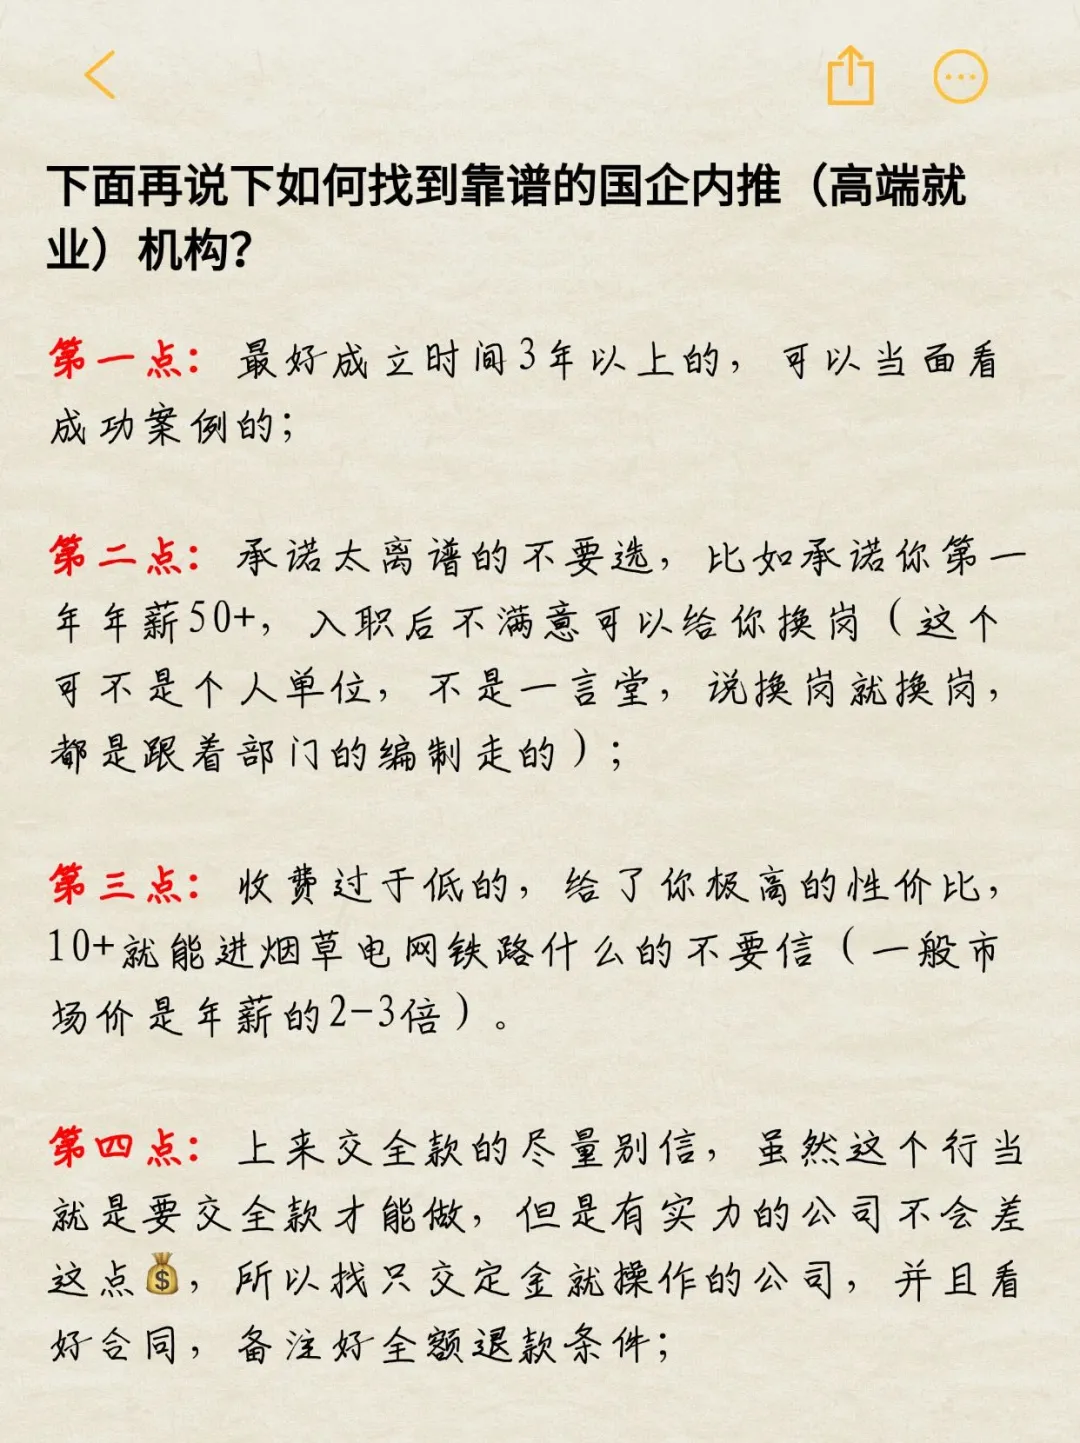 下面再说下如何找到靠谱的国企内推（高端就
业）机构？
第一点：最好成立时间3年以上的，可以当面看
成功案例的；
第二点：承诺太离谱的不要选，比如承诺你第一
年年薪50+，入职后不满意可以给你换岗（这个
可不是个人单位，不是一言堂，说换岗就换岗，
都是跟着部门的编制走的）；
第三点：收费过于低的，给了你极高的性价比，
10+就能进烟草电网铁路什么的不要信（一般市
场价是年薪的2-3倍）。
第四点：上来交全款的尽量别信，虽然这个行当
就是要交全款才能做，但是有实力的公司不会差
这点💰，所以找只交定金就操作的公司，并且看
好合同，备注好全额退款条件；